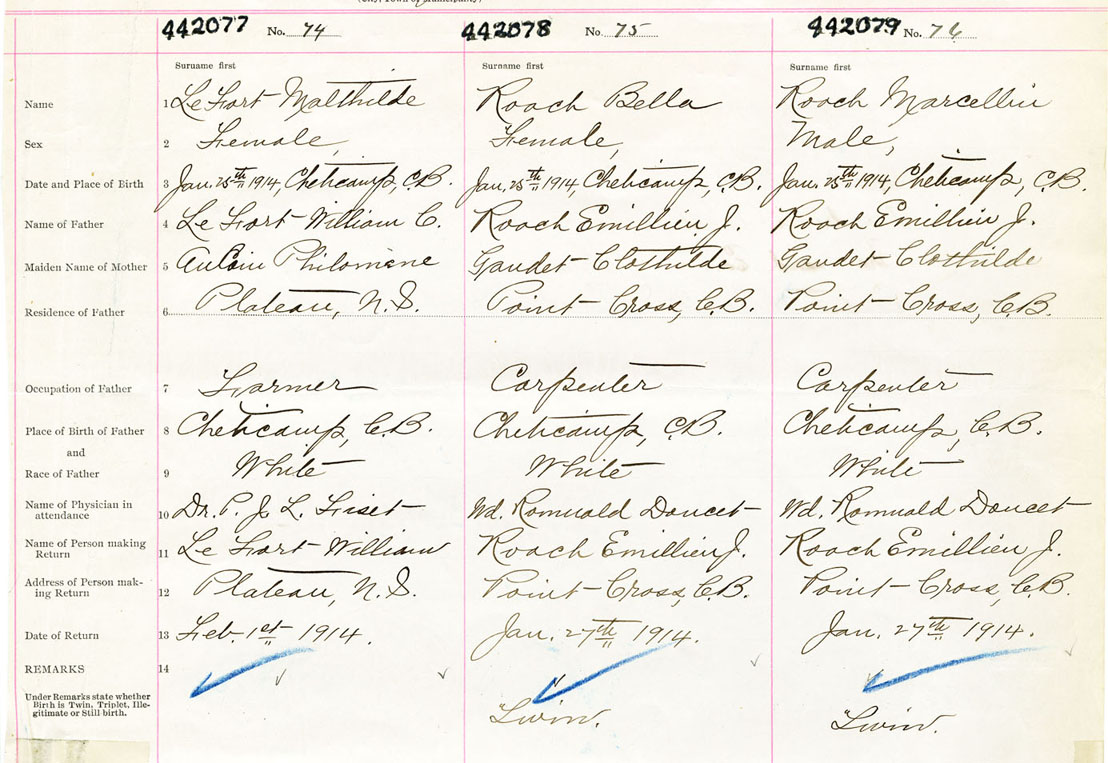 442077 No. 74 442078 No. 75 442079 No. 76
Surname first Surname first Surname first
Name 1 Le Fort Malthilde Roach Bella Roach Marcellin
Sex 2 Female, Female, Male,
Date and Place of Birth 3 Jan. 25th 1914, Cheticamp, C.B. Jan. 25th 1914, Cheticamp, C.B. Jan. 25th 1914, Cheticamp, C.B.
Name of Father 4 Le Fort William C. Roach Emillien J. Roach Emillien J.
Maiden Name of Mother 5 Aucoin Philomene Gaudet Clothilde Gaudet Clothilde
Residence of Father 6 Plateau, N.S. Point Cross, C.B. Point Cross, C.B.
Occupation of Father 7 Farmer Carpenter Carpenter
Place of Birth of Father 8 Cheticamp, C.B. Cheticamp, C.B. Cheticamp, C.B.
and
Race of Father 9 White White White
Name of Physician in
attendance 10 Dr. P. J. L. Fiset Wd. Romuald Doucet Wd. Romuald Doucet
Name of Person making
Return 11 Le Fort William Roach Emillien J. Roach Emillien J.
Address of Person mak-
ing Return 12 Plateau, N.S. Point Cross, C.B. Point Cross, C.B.
Date of Return 13 Feb. 1st 1914. Jan. 27th 1914. Jan. 27th 1914.
REMARKS 14
Under Remarks state whether
Birth is Twin, Triplet, Ille-
gitimate or Still birth.
Twin. Twin.